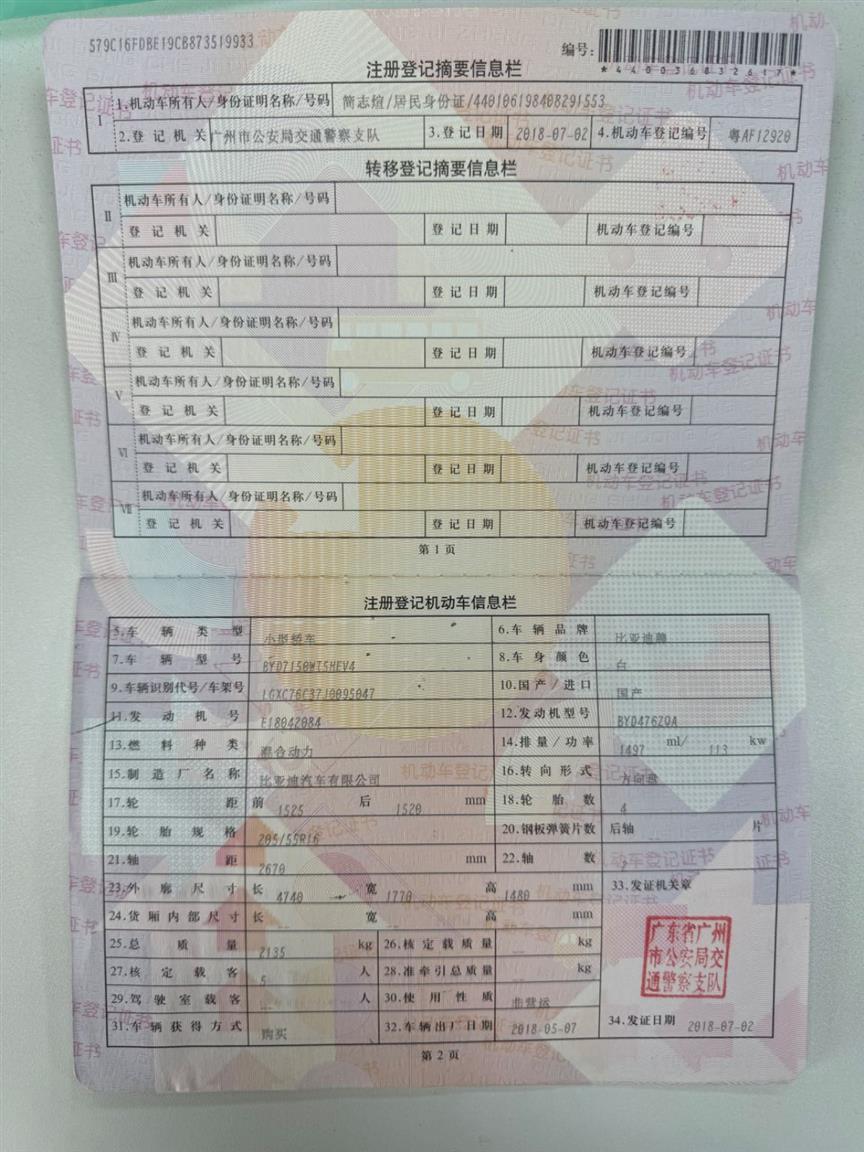 579C16FDBE19CB873519933
编号:
*440036832617*
注册登记摘要信息栏
I 1.机动车所有人/身份证明名称/号码 简志煊/居民身份证/440106198408291553
2.登记机关 广州市公安局交通警察支队 3.登记日期 2018-07-02 4.机动车登记编号 粤AF12920
转移登记摘要信息栏
II 机动车所有人/身份证明名称/号码
登记机关 登记日期 机动车登记编号
III 机动车所有人/身份证明名称/号码
登记机关 登记日期 机动车登记编号
IV 机动车所有人/身份证明名称/号码
登记机关 登记日期 机动车登记编号
V 机动车所有人/身份证明名称/号码
登记机关 登记日期 机动车登记编号
VI 机动车所有人/身份证明名称/号码
登记机关 登记日期 机动车登记编号
VII 机动车所有人/身份证明名称/号码
登记机关 登记日期 机动车登记编号
第1页
注册登记机动车信息栏
5.车辆类型 小型轿车 6.车辆品牌 比亚迪牌
7.车辆型号 BYD7150WT5HEV4 8.车身颜色 白
9.车辆识别代号/车架号 LGXC76C37J0095047 10.国产/进口 国产
11.发动机号 E18042084 12.发动机型号 BYD476ZQA
13.燃料种类 混合动力 14.排量/功率 1497 ml/ 113 kw
15.制造厂名称 比亚迪汽车有限公司 16.转向形式 方向盘
17.轮距 前 1525 后 1520 mm 18.轮胎数 4
19.轮胎规格 205/55R16 20.钢板弹簧片数 后轴 片
21.轴距 2670 mm 22.轴数 2
23.外廓尺寸 长 4740 宽 1770 高 1480 mm 33.发证机关章
24.货厢内部尺寸 长 宽 高 mm
25.总质量 2135 kg 26.核定载质量 -- kg
27.核定载客 5 人 28.准牵引总质量 -- kg
29.驾驶室载客 -- 人 30.使用性质 非营运
31.车辆获得方式 购买 32.车辆出厂日期 2018-05-07 34.发证日期 2018-07-02
广东省广州
市公安局交
通警察支队
第2页